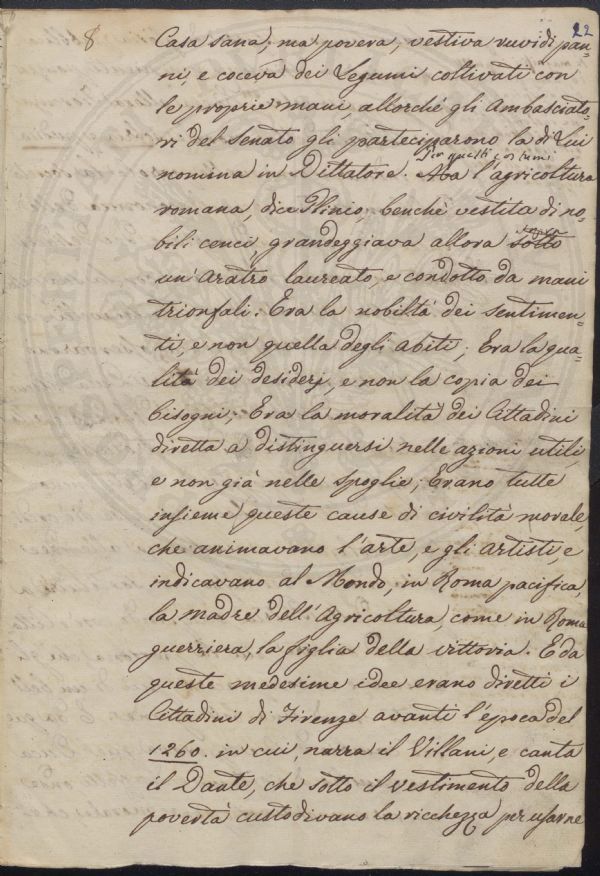 8
22
Casa sana, ma povera, vestiva ruvidi pan=
ni, e coceva dei Legumi coltivati con
le proprie mani, allorchè gli Ambasciato=
ri del Senato gli parteciparono la di Lui
nomina in Dittatore. Ma l'agricoltura
romana, dice Plinio, benchè vestita di no=
bili cenci grandeggiava allora sotto
un'aratro laureato, e condotto da mani
trionfali. Era la nobiltà dei sentimen=
ti, e non quella degli abiti; Era la qua=
lità dei desiderj, e non la copia dei
bisogni; Era la moralità dei Cittadini
diretta a distinguersi nelle azioni utili,
e non già nelle spoglie; Erano tutte
insieme queste cause di civilità morale,
che animavano l'arte, e gli artisti, e
indicavano al Mondo, in Roma pacifica,
la madre dell'Agricoltura, come in Roma
guerriera, la figlia della vittoria. E da
queste medesime idee erano diretti i
Cittadini di Firenze avanti l'epoca del
1260. in cui, narra il Villani, e canta
il Dante, che sotto il vestimento della
povertà custodivano la ricchezza per usarne